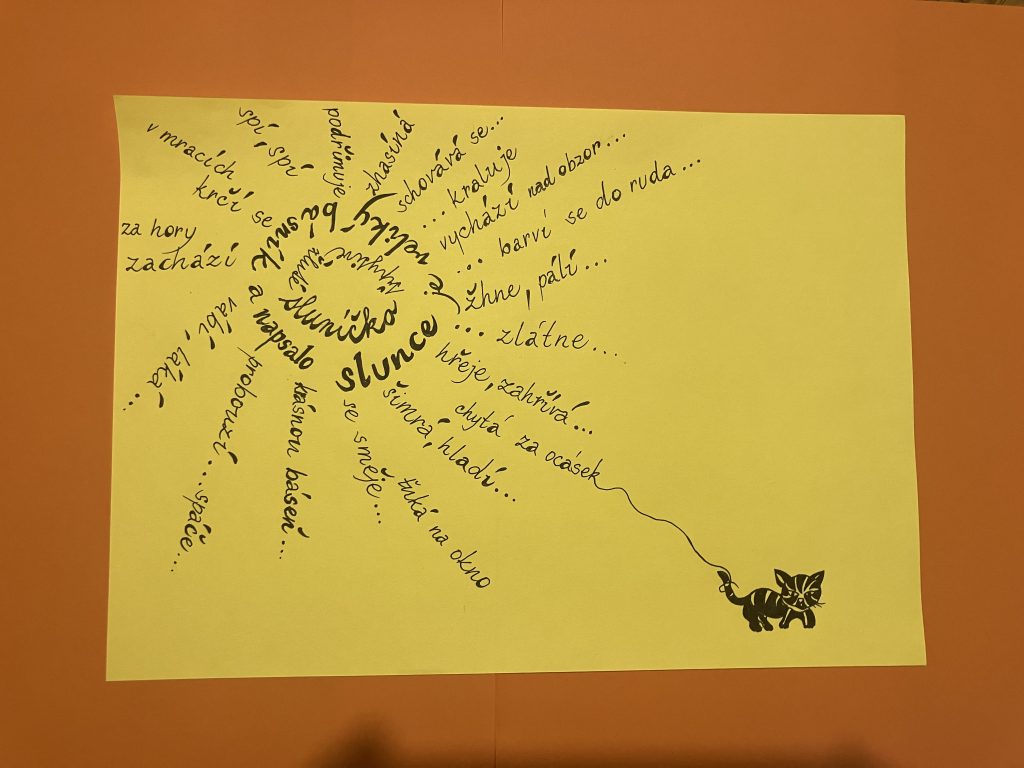 žluté
sluníčko
slunce
je
veliký
básník
a napsalo
krásnou báseň...
probouzí...spáče...
vábí, láká...
za hory
zachází
v mracích
krčí se
spí, spí
podřimuje
zhasíná
schovává se...
...kraluje
vychází nad obzor...
...barví se do ruda...
žhne, pálí...
...zlátne...
hřeje, zahřívá...
chytá za ocásek
šimrá, hladí...
ťuká na okno
se směje...